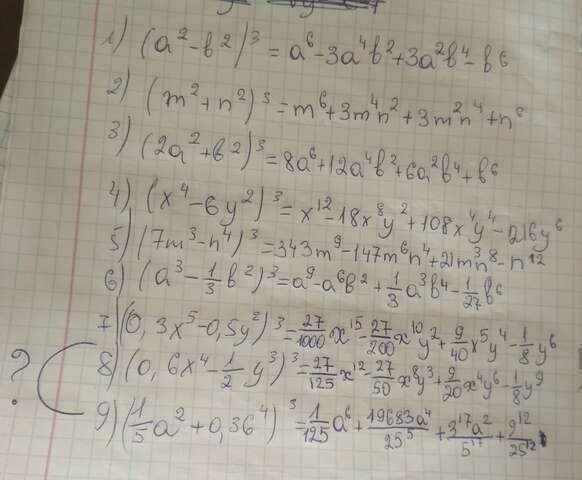 1) (a² - b²)³ = a⁶ - 3a⁴b² + 3a²b⁴ - b⁶
2) (m² + n²)³ = m⁶ + 3m⁴n² + 3m²n⁴ + n⁶
3) (2a² + b²)³ = 8a⁶ + 12a⁴b² + 6a²b⁴ + b⁶
4) (x⁴ - 6y²)³ = x¹² - 18x⁸y² + 108x⁴y⁴ - 216y⁶
5) (7m³ - n⁴)³ = 343m⁹ - 147m⁶n⁴ + 21m³n⁸ - n¹²
6) (a³ - 1/3 b²)³ = a⁹ - a⁶b² + 1/3 a³b⁴ - 1/27 b⁶
7) (0,3x⁵ - 0,5y²)³ = 27/1000 x¹⁵ - 27/200 x¹⁰y² + 9/40 x⁵y⁴ - 1/8 y⁶
? 8) (0,6x⁴ - 1/2 y³)³ = 27/125 x¹² - 27/50 x⁸y³ + 9/20 x⁴y⁶ - 1/8 y⁹
9) (1/5 a² + 0,36⁴)³ = 1/125 a⁶ + 19683a⁴/25⁵ + 3¹⁷a²/5¹⁷ + 9¹²/25¹²